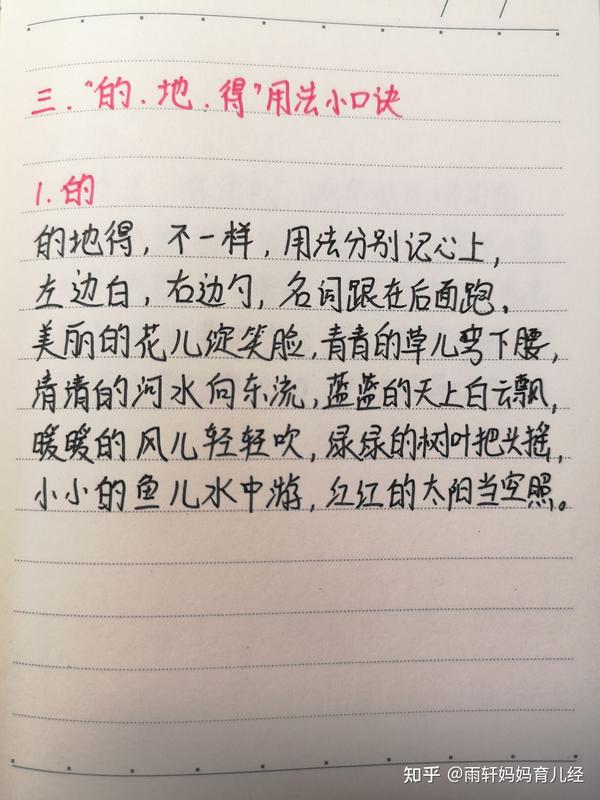 三."的.地.得"用法小口诀
1.的
的地得,不一样,用法分别记心上,
左边白,右边勺,名词跟在后面跑。
美丽的花儿绽笑脸,青青的草儿弯下腰,
清清的河水向东流,蓝蓝的天上白云飘,
暖暖的风儿轻轻吹,绿绿的树叶把头摇,
小小的鱼儿水中游,红红的太阳当空照。
知乎 @雨轩妈妈育儿经